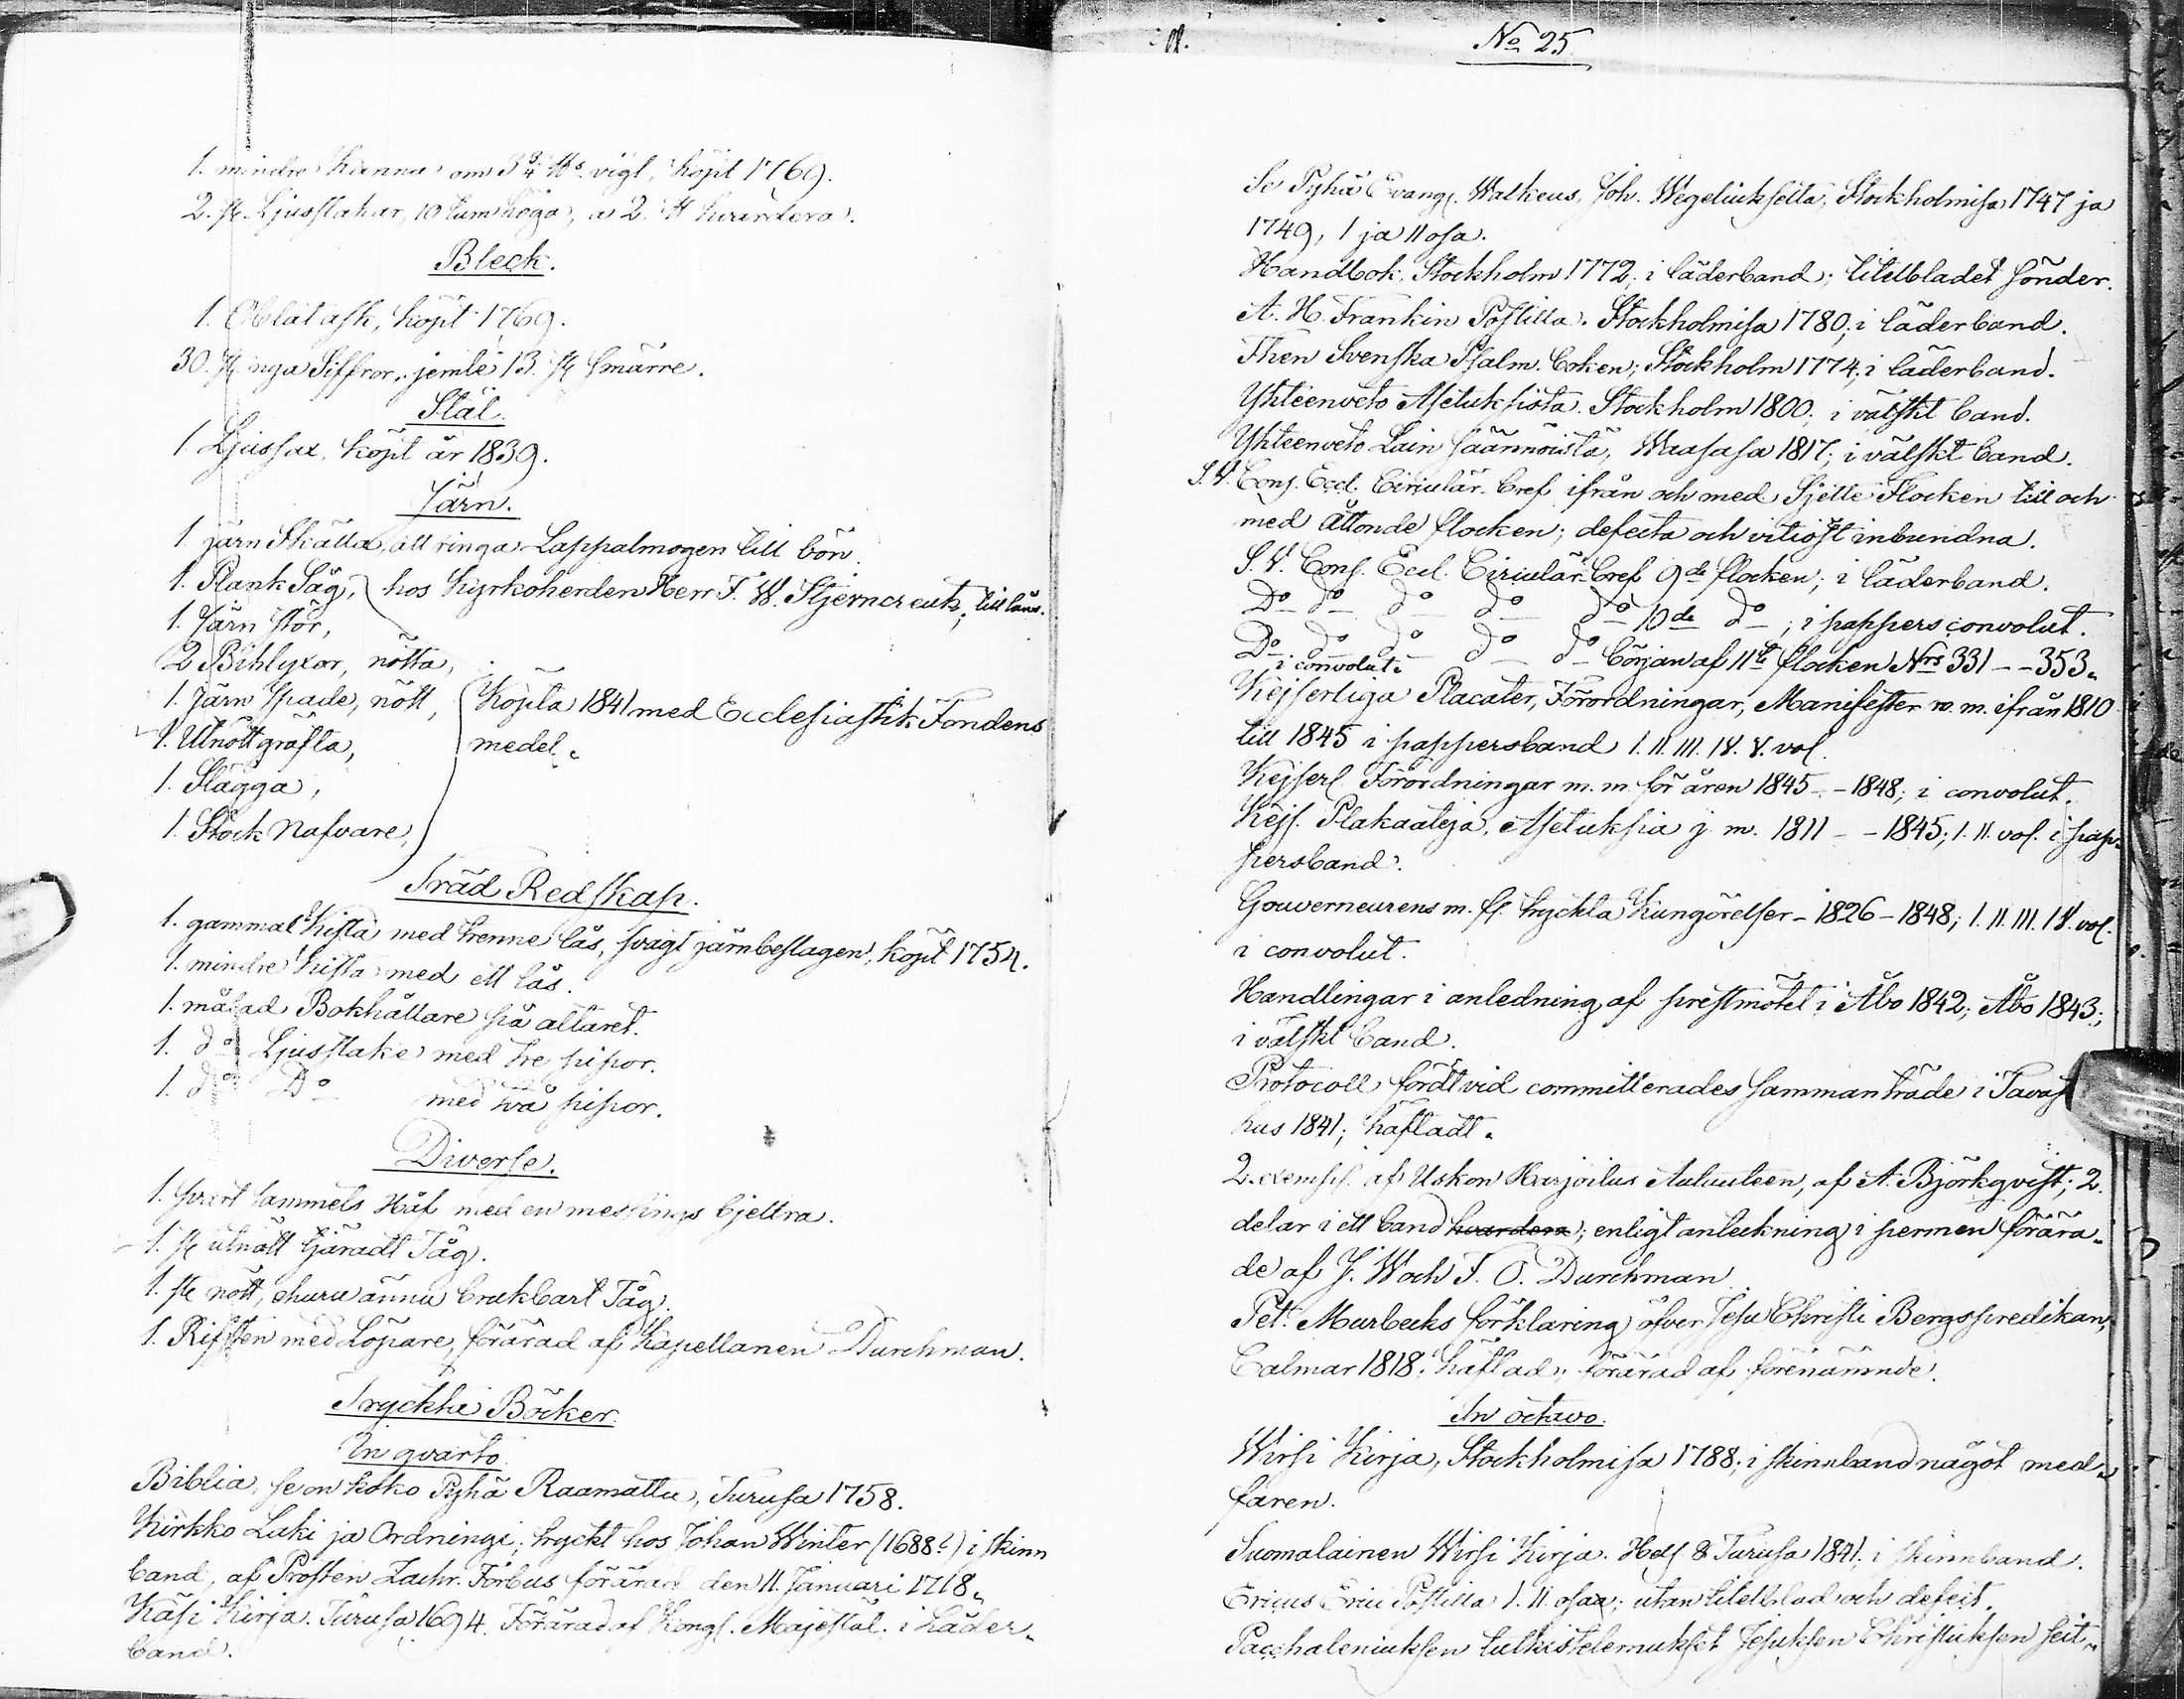 1. mindre Kanna om 3 3/4 ℔s vigt, köpt 1769.
2. st. Ljusstakar, 10 tum höga, a 2. ℔ hvardera.
Bleck.
1. Oblat ask, köpt 1769.
30. st nya Siffror, jemte 13. st smärre.
Stål.
1. Ljussax, köpt år 1839.
Järn.
1. järn Skälla, att ringa Lappalmogen till bön.
1. Plank Såg, hos Kyrkoherden Herr F. W. Stjerncreutz, till låns.
1. Järn stör,
2 Bihlyxor, nötta,
1. Järn spade, nött, Köpta 1841 med Ecclesiastik Fondens
1. Utnött gräfta, medel.
1. Slägga,
1. Stock Nafvare,
Träd Redskap.
1. gammal Kista med trenne lås, svagt järnbeslagen, köpt 1754.
1. mindre Kista med ett lås.
1. målad Bokhållare på altaret.
1. do Ljusstake med tre pipor.
1. do Do med två pipor.
Diverse.
1. svart sammets Håf med en messings bjellra.
1. st utnött tjäradt Tåg.
1. st nött, ehuru ännu brukbart Tåg.
1. Rifsten med Löpare, förärad af Kapellanen Durchman.
Tryckta Böcker.
In qvarto.
Biblia, se on koko Pyhä Raamattu, Turusa 1758.
Kirkko Laki ja Ordningi, tryckt hos Johan Winter (1688?) i skinn
band, af Prosten Zachr. Forbus förärad den 11. Januari 1718.
Käsi Kirja. Turusa 1694. Förärad af Kongl. Majestät. i Läder-
band.
No 25.
Se Pyhä Evangl. Walkeus, Joh. Wegeliukselta, Stockholmisa 1747 ja
1749, I ja II osa.
Handbok, Stockholm 1772; i läderband; titelbladet sönder.
A. H. Frankin Postilla. Stockholmisa 1780; i läderband.
Then Svenska Psalm. boken; Stockholm 1774; i läderband.
Yhteenveto Asetuksista. Stockholm 1800; i välskt band.
Yhteenveto Lain säännöistä, Waasasa 1817; i välskt band.
S. V. Cons. Eccl. Cirkulär. bref ifrån och med Sjette Flocken till och
med åttonde flocken; defecta och vitiöst inbundna.
S. V. Cons. Eccl. Cirkulär. bref 9de flocken; i läderband.
Do do do do do 10de do; i pappers convolut.
Do do do do do början af 11te flocken Nrs 331 - - 353.
i convolut.
Kejserliga Placater, Förordningar, Manifester m. m. ifrån 1810
till 1845 i pappersband I. II. III. IV. V. vol.
Kejserl. Förordningar m. m. för åren 1845 - - 1848; i convolut.
Kejs. Plakaateja, Asetuksia j. m. 1811 - - 1845; I. II. vol. i pap-
persband.
Gouverneurens m. fl. tryckta Kungörelser - 1826 - 1848; I. II. III. IV. vol.
i convolut.
Handlingar i anledning af prestmötet i Åbo 1842; Åbo 1843;
i välskt band.
Protocoll fördt vid committerades sammanträde i Tavast
hus 1841; häftadt.
2. exempl. af Uskon Harjoitus Autuuteen, af A. Björkqvist; 2.
delar i ett band hvardera; enligt anteckning i permen förära-
de af J. W och F. O. Durchman
Pet. Murbecks förklaring öfver Jesu Christi Bergspredikan,
Calmar 1818; häftad; förärad af förenämnde.
In octavo.
Wirsi Kirja, Stockholmisa 1788; i skinnband något med-
faren.
Suomalainen Wirsi Kirja. Hels. & Turusa 1841; i skinnband.
Ericus Erici Postilla I. II. osaa; utan titelblad och defect.
Paschaleniuksen tutkistelemukset Jesuksen Christuksen seit-